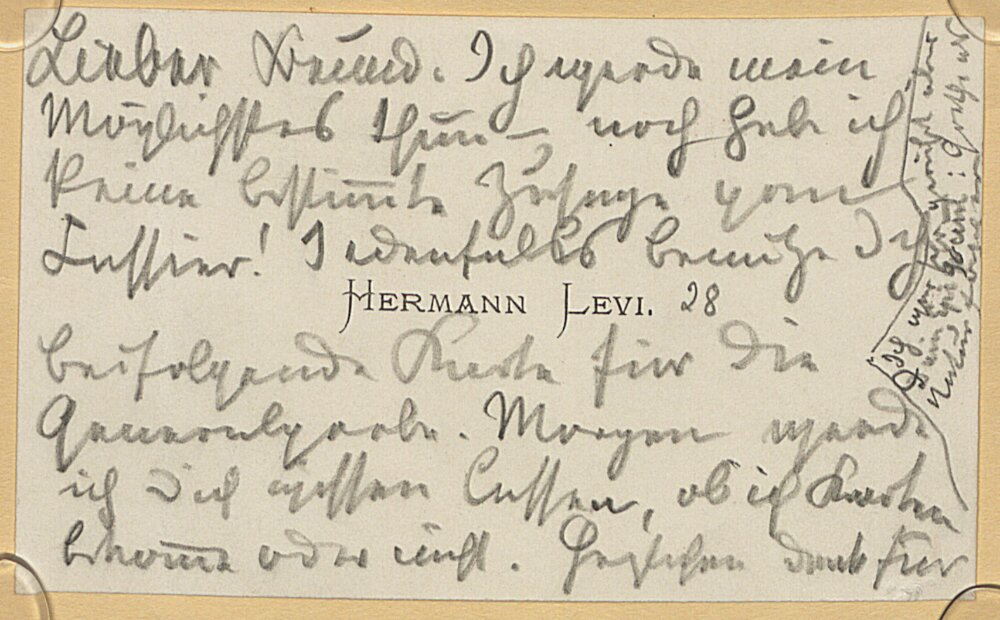 Lieber Freund. Ich werde mein
Möglichstes thun – noch habe ich
keine bestimmte Zusage vom
Cassier! Jedenfalls benütze Du
HERMANN LEVI. 28
beifolgende Karte für die
Generalprobe. Morgen werde
ich Dich wissen lassen, ob ich Karten
bekome oder nicht. Herzlichen Dank für